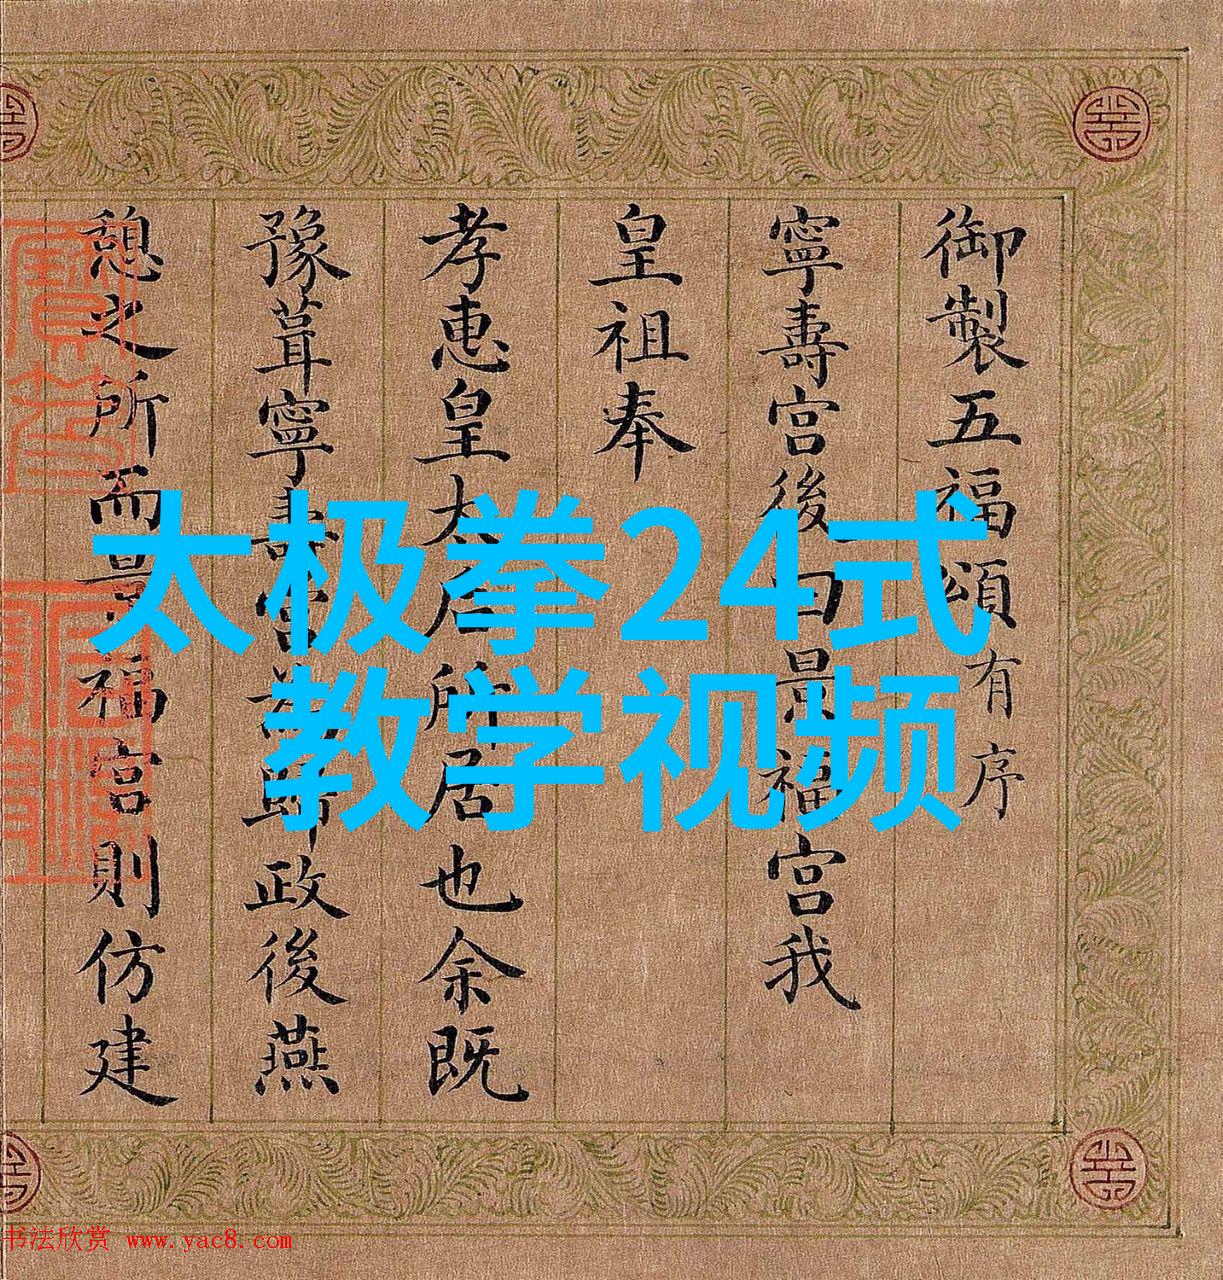 御製五福頌有序
寧壽宫後曰景福宫我
皇祖奉
孝惠皇太后所居也余既
豫葺寧壽宫為歸政後燕
憩之所而景福宫則仿建
太极拳24式
教学视频
书法欣赏 www.yac8.com